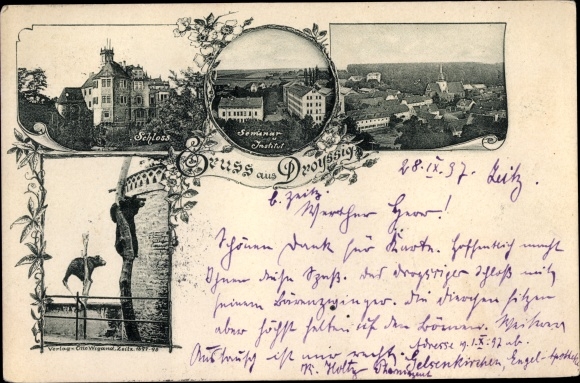 Schloss.
Seminar u. Institut
Gruss aus Droyssig
28.IX.97. Zeitz.
b. Zeitz
Werther Herr!
Schönen Dank für Karte. Hoffentlich macht
Ihnen diese Spaß. Das Droyssiger Schloß mit
seinem Bärenzwinger. Die Viecher sitzen
aber höchst selten auf den Bäumen. Weiterer
Austausch ist mir recht.
Adresse v. 1.X.97 ab.
Gelsenkirchen, Engel-Apotheke
R. Holtz
Pharmazeut
Verlag - Otto Wigand, Zeitz.